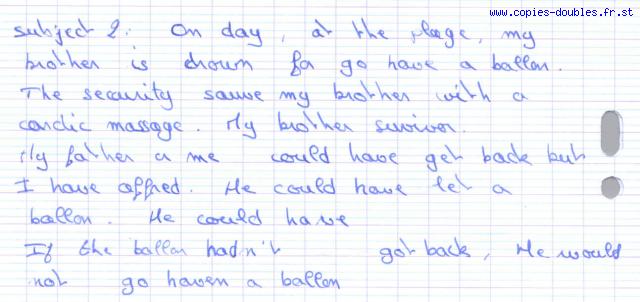 www.copies-doubles.fr.st
subject 2: On day, at the plage, my
brother is drown for go have a ballon.
The security sauve my brother with a
cardic massage. My brother survivor.
My father a me could have get back but
I have affred. He could have let a
ballon. He could have
If the ballon hadn't got back, He would
not go haven a ballon